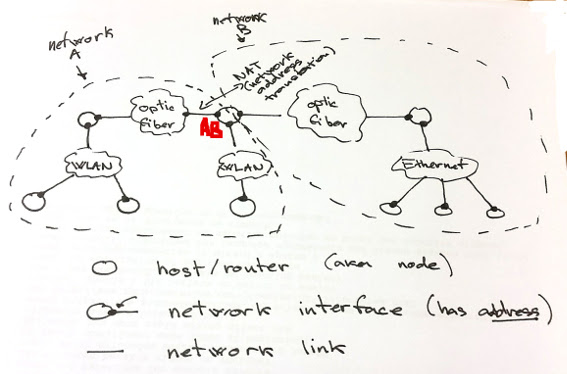 network
A
network
B
NAT
(network
address
translation)
optic
fiber
AB
optic
fiber
WLAN
WLAN
Ethernet
host/router (aka node)
network interface (has address)
network link